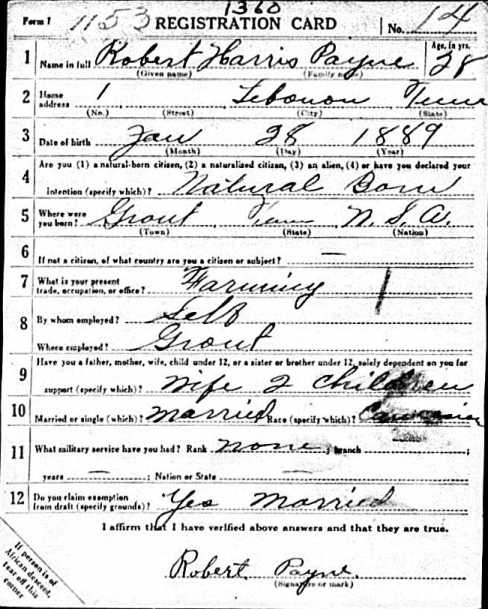 1360
Form 1 1153 REGISTRATION CARD No. 14
1 Name in full Robert Harris Payne Age, in yrs. 28
(Given name) (Family name)
2 Home address 1 Lebonon Tenn
(No.) (Street) (City) (State)
3 Date of birth Jan 28 1889
(Month) (Day) (Year)
Are you (1) a natural-born citizen, (2) a naturalized citizen, (3) an alien, (4) or have you declared your
4 intention (specify which)? Natural Born
5 Where were you born? Grout Tenn U. S. A.
(Town) (State) (Nation)
6 If not a citizen, of what country are you a citizen or subject? —
7 What is your present trade, occupation, or office? Farming
8 By whom employed? Self
Where employed? Grout
9 Have you a father, mother, wife, child under 12, or a sister or brother under 12, solely dependent on you for
support (specify which)? Wife 2 Children
10 Married or single (which)? Married Race (specify which)? Caucasian
11 What military service have you had? Rank none ; branch ;
years — ; Nation or State —
12 Do you claim exemption from draft (specify grounds)? Yes Married
I affirm that I have verified above answers and that they are true.
Robert Payne
(Signature or mark)
If person is of
African descent,
tear off this
corner